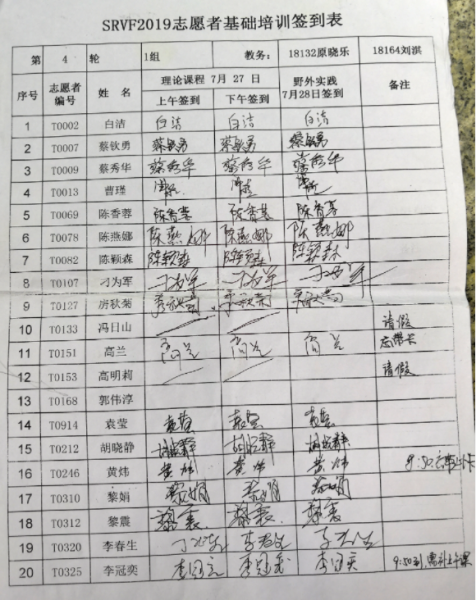 SRVF2019志愿者基础培训签到表
第 4 轮 1组 教务: 18132原晓乐 18164刘淇
序号 志愿者编号 姓名 理论课程 7月 27 日 野外实践 备注
上午签到 下午签到 7月28日签到
1 T0002 白洁 白洁 白洁 白洁
2 T0007 蔡钦勇 蔡钦勇 蔡钦勇 蔡钦勇
3 T0009 蔡秀华 蔡秀华 蔡秀华 蔡秀华
4 T0013 曹瑾
5 T0069 陈香蓉 陈香蓉 陈香蓉 陈香蓉
6 T0078 陈燕娜 陈燕娜 陈燕娜 陈燕娜
7 T0082 陈颖森 陈颖森 陈颖森 陈颖森
8 T0107 刁为军 刁为军 刁为军 刁为军
9 T0127 房秋菊
10 T0133 冯日山 请假
11 T0151 高兰 高兰 高兰 高兰
12 T0153 高明莉 请假
13 T0168 郭伟淳
14 T0914 袁莹 袁莹 袁莹 袁莹
15 T0212 胡晓静 胡晓静 胡晓静 胡晓静
16 T0246 黄炜 黄炜 黄炜 黄炜 8:50
17 T0310 黎娟 黎娟 黎娟 黎娟
18 T0312 黎震 黎震 黎震 黎震
19 T0320 李春生 李春生 李春生
20 T0325 李冠奕 李冠奕 李冠奕 李冠奕 9:50到,需补上午课